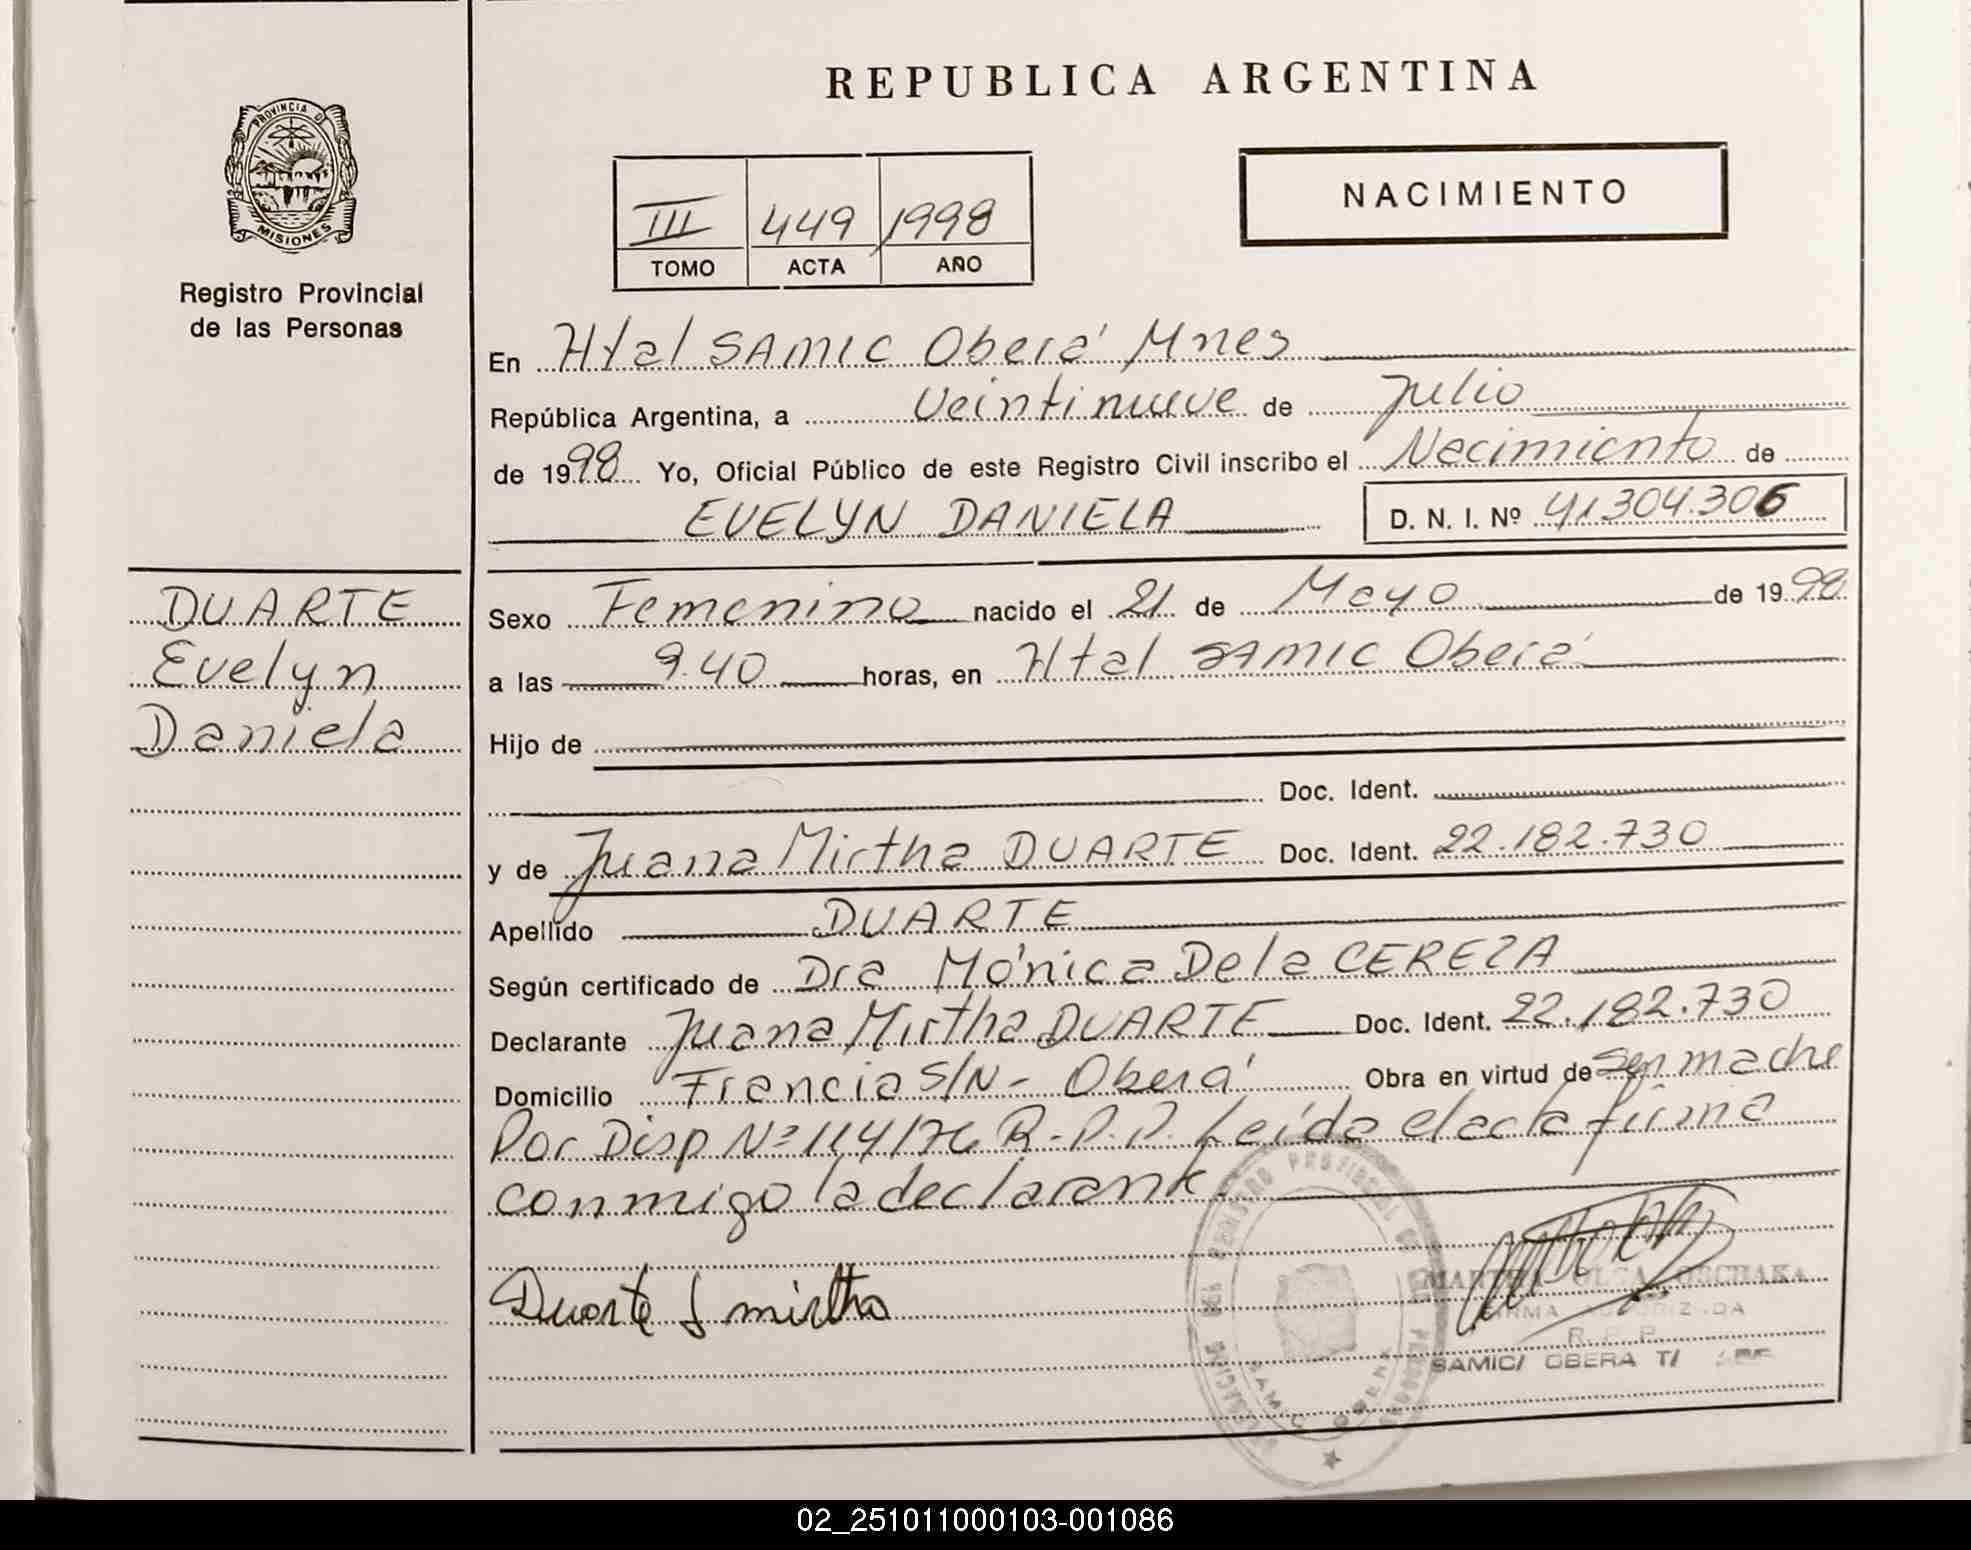 REPUBLICA ARGENTINA
PROVINCIA D
MISIONES
Registro Provincial
de las Personas
III 449 1998
TOMO ACTA AÑO
NACIMIENTO
En Htal SAMIC Oberá Mnes
República Argentina, a Veintinueve de Julio
de 1998 Yo, Oficial Público de este Registro Civil inscribo el Nacimiento de
EVELYN DANIELA D. N. I. Nº 41.304.306
DUARTE
Evelyn
Daniela
Sexo Femenino nacido el 21 de Mayo de 1998
a las 9.40 horas, en Htal SAMIC Oberá
Hijo de
Doc. Ident.
y de Juana Mirtha DUARTE Doc. Ident. 22.182.730
Apellido DUARTE
Según certificado de Dra Mónica De la CEREZA
Declarante Juana Mirtha DUARTE Doc. Ident. 22.182.730
Domicilio Francia S/N - Oberá Obra en virtud de ser madre
Por Disp Nº 114/76 R.P.P. Leída el acta firma
conmigo la declarante
Duarte J mirtha
REGISTRO PROVINCIAL DE LAS PERSONAS
SAMIC OBERA
MARTHA OLGA
FIRMA AUTORIZADA
R. P. P.
SAMIC/ OBERA
02_251011000103-001086